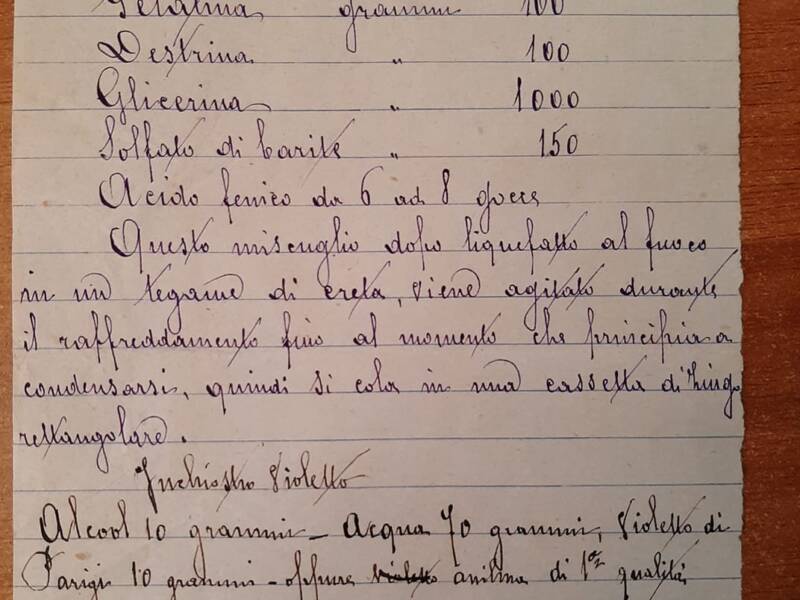 Gelatina grammi 100
Destrina " 100
Glicerina " 1000
Solfato di barite " 150
Acido fenico da 6 ad 8 gocce
Questo miscuglio dopo liquefatto al fuoco
in un tegame di creta, viene agitato durante
il raffreddamento fino al momento che principia a
condensarsi, quindi si cola in una cassetta di Zingo
rettangolare.
Inchiostro Violetto
Alcool 10 grammi - Acqua 70 grammi, Violetto di
Parigi 10 grammi - oppure violetto anilina di 1ª qualità